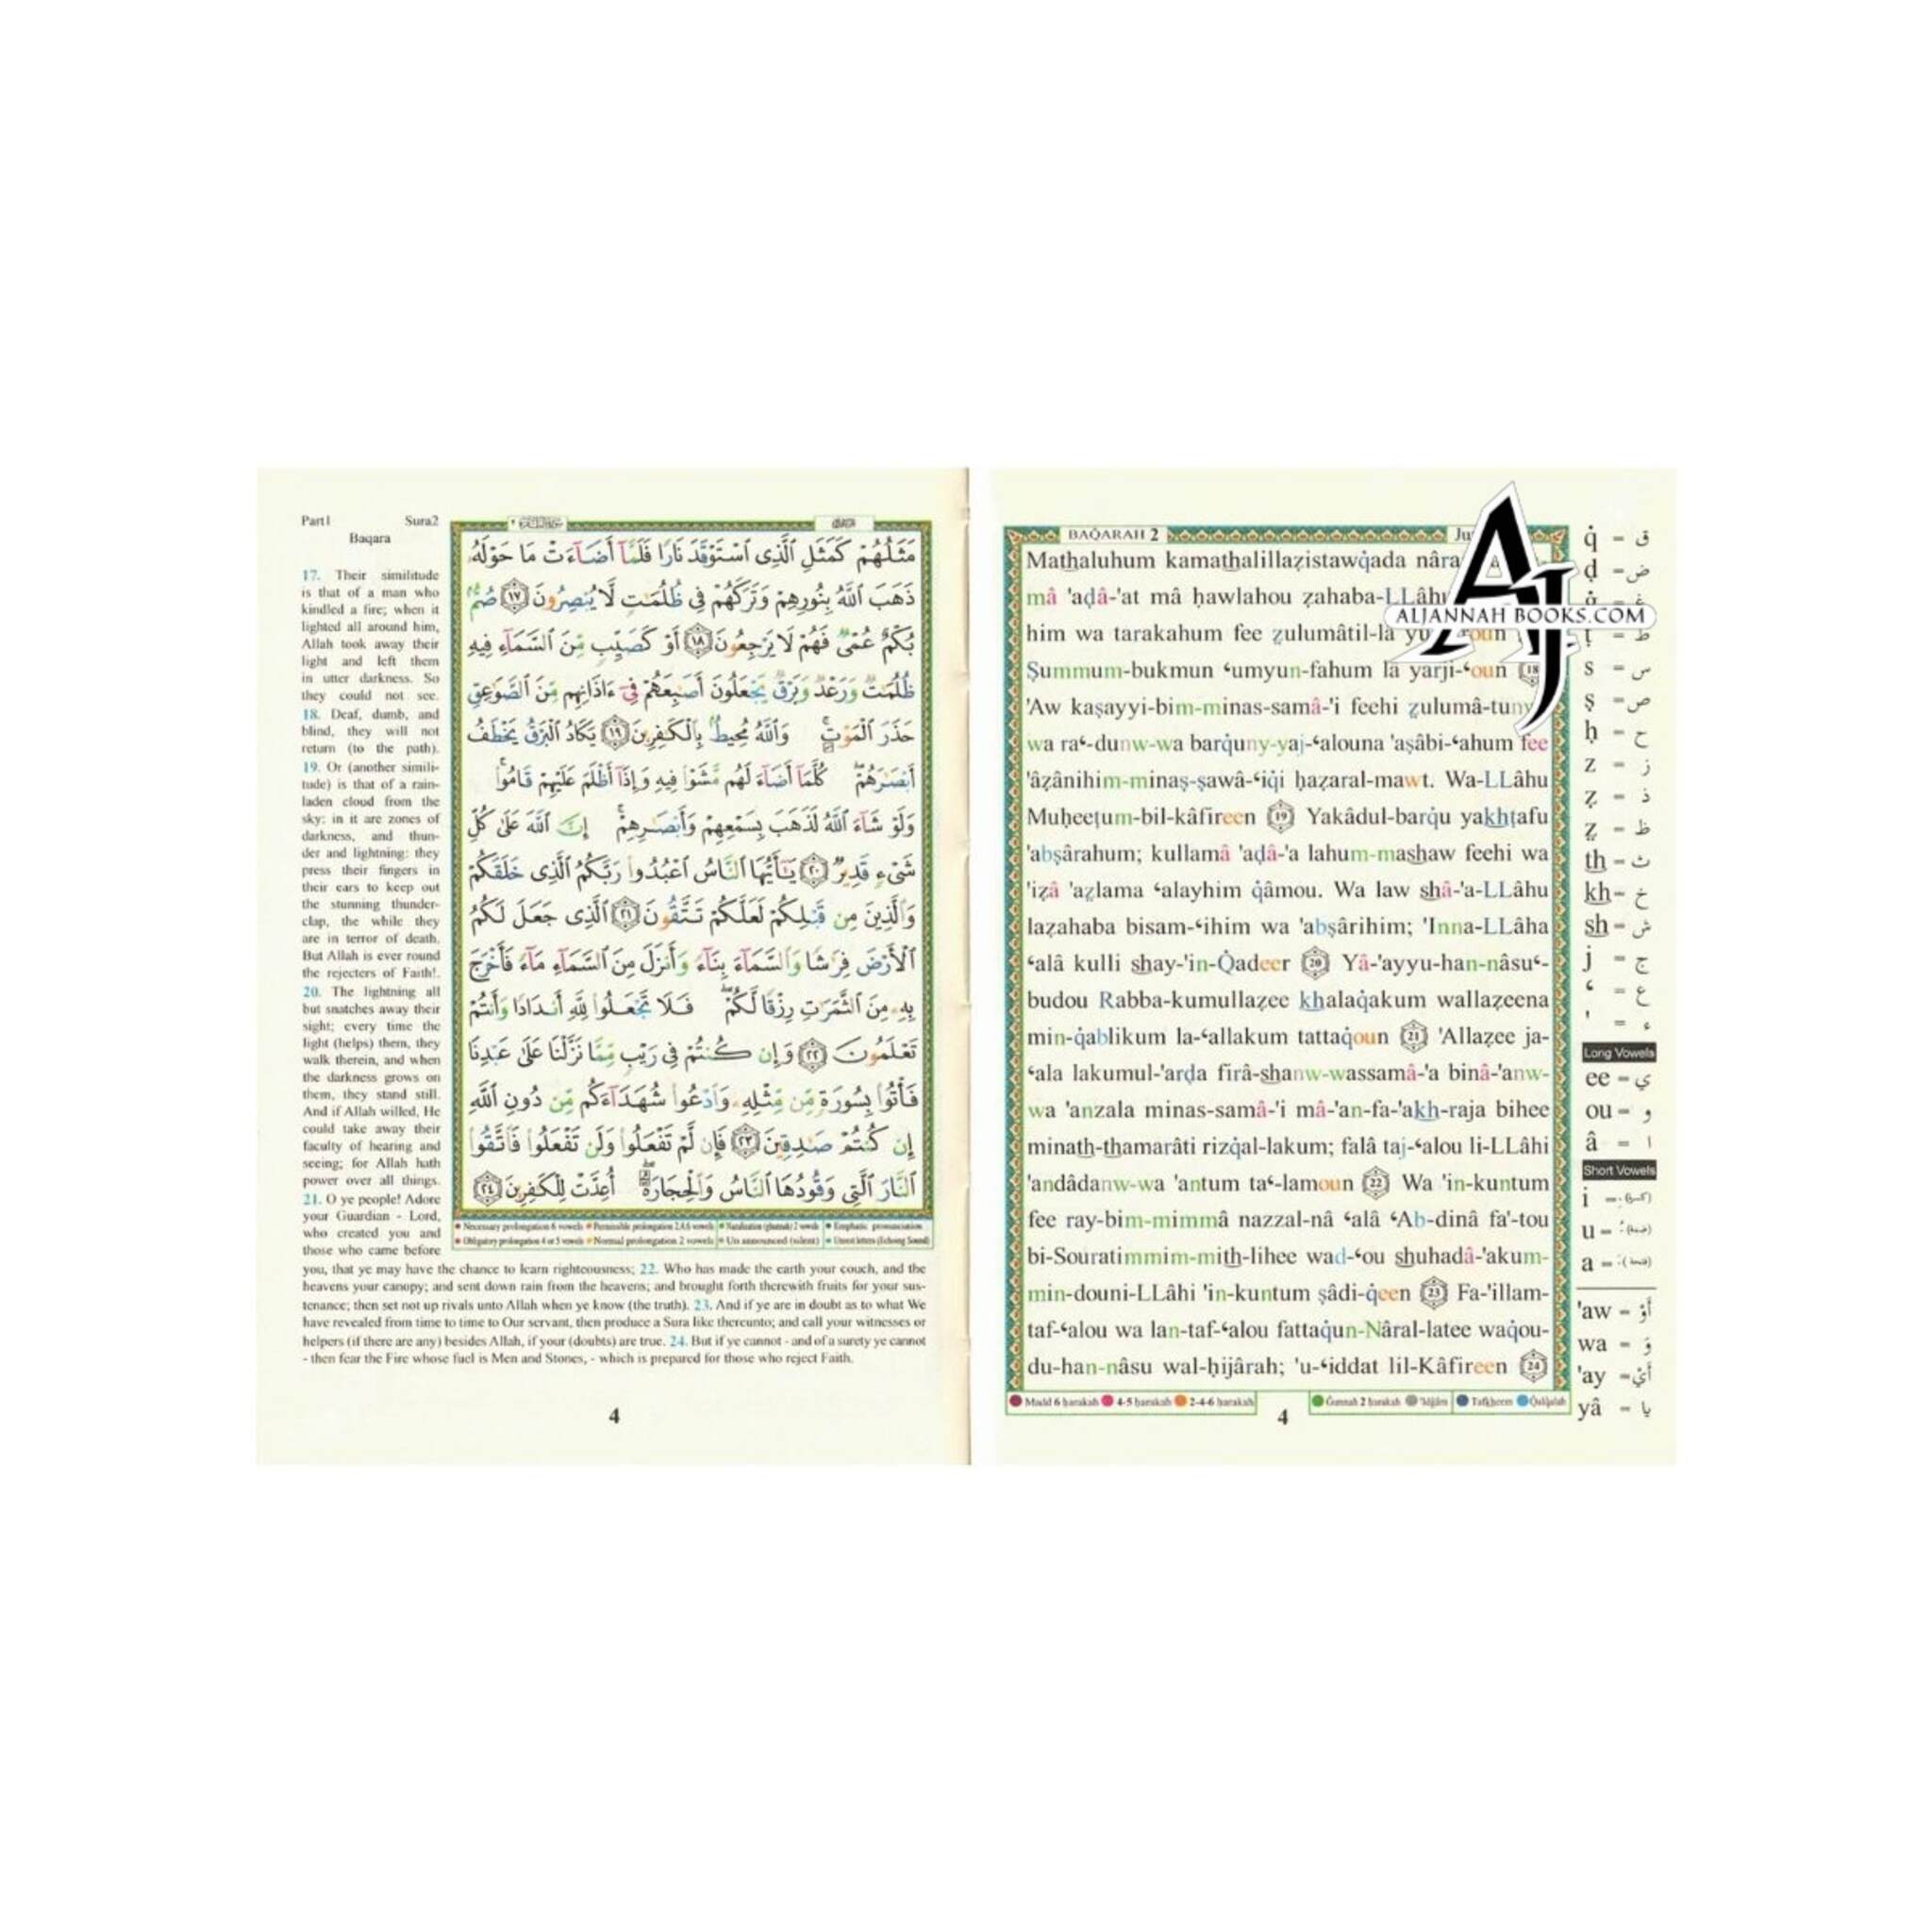 Part1 Sura2
Baqara
17. Their similitude
is that of a man who
kindled a fire; when it
lighted all around him,
Allah took away their
light and left them
in utter darkness. So
they could not see.
18. Deaf, dumb, and
blind, they will not
return (to the path).
19. Or (another simili-
tude) is that of a rain-
laden cloud from the
sky: in it are zones of
darkness, and thun-
der and lightning: they
press their fingers in
their ears to keep out
the stunning thunder-
clap, the while they
are in terror of death.
But Allah is ever round
the rejecters of Faith!.
20. The lightning all
but snatches away their
sight; every time the
light (helps) them, they
walk therein, and when
the darkness grows on
them, they stand still.
And if Allah willed, He
could take away their
faculty of hearing and
seeing; for Allah hath
power over all things.
21. O ye people! Adore
your Guardian - Lord,
who created you and
those who came before
you, that ye may have the chance to learn righteousness; 22. Who has made the earth your couch, and the
heavens your canopy; and sent down rain from the heavens; and brought forth therewith fruits for your sus-
tenance; then set not up rivals unto Allah when ye know (the truth). 23. And if ye are in doubt as to what We
have revealed from time to time to Our servant, then produce a Sura like thereunto; and call your witnesses or
helpers (if there are any) besides Allah, if your (doubts) are true. 24. But if ye cannot - and of a surety ye cannot
- then fear the Fire whose fuel is Men and Stones, - which is prepared for those who reject Faith.
مَثَلُهُمْ كَمَثَلِ ٱلَّذِى ٱسْتَوْقَدَ نَارًا فَلَمَّآ أَضَآءَتْ مَا حَوْلَهُۥ
ذَهَبَ ٱللَّهُ بِنُورِهِمْ وَتَرَكَهُمْ فِى ظُلُمَٰتٍ لَّا يُبْصِرُونَ ١٧ صُمٌّۢ
بُكْمٌ عُمْىٌ فَهُمْ لَا يَرْجِعُونَ ١٨ أَوْ كَصَيِّبٍ مِّنَ ٱلسَّمَآءِ فِيهِ
ظُلُمَٰتٌ وَرَعْدٌ وَبَرْقٌ يَجْعَلُونَ أَصَٰبِعَهُمْ فِىٓ ءَاذَانِهِم مِّنَ ٱلصَّوَٰعِقِ
حَذَرَ ٱلْمَوْتِ ۚ وَٱللَّهُ مُحِيطٌۢ بِٱلْكَٰفِرِينَ ١٩ يَكَادُ ٱلْبَرْقُ يَخْطَفُ
أَبْصَٰرَهُمْ ۖ كُلَّمَآ أَضَآءَ لَهُم مَّشَوْا۟ فِيهِ وَإِذَآ أَظْلَمَ عَلَيْهِمْ قَامُوا۟ ۚ
وَلَوْ شَآءَ ٱللَّهُ لَذَهَبَ بِسَمْعِهِمْ وَأَبْصَٰرِهِمْ ۚ إِنَّ ٱللَّهَ عَلَىٰ كُلِّ
شَىْءٍ قَدِيرٌ ٢٠ يَٰٓأَيُّهَا ٱلنَّاسُ ٱعْبُدُوا۟ رَبَّكُمُ ٱلَّذِى خَلَقَكُمْ
وَٱلَّذِينَ مِن قَبْلِكُمْ لَعَلَّكُمْ تَتَّقُونَ ٢١ ٱلَّذِى جَعَلَ لَكُمُ
ٱلْأَرْضَ فِرَٰشًا وَٱلسَّمَآءَ بِنَآءً وَأَنزَلَ مِنَ ٱلسَّمَآءِ مَآءً فَأَخْرَجَ
بِهِۦ مِنَ ٱلثَّمَرَٰتِ رِزْقًا لَّكُمْ ۖ فَلَا تَجْعَلُوا۟ لِلَّهِ أَندَادًا وَأَنتُمْ
تَعْلَمُونَ ٢٢ وَإِن كُنتُمْ فِى رَيْبٍ مِّمَّا نَزَّلْنَا عَلَىٰ عَبْدِنَا
فَأْتُوا۟ بِسُورَةٍ مِّن مِّثْلِهِۦ وَٱدْعُوا۟ شُهَدَآءَكُم مِّن دُونِ ٱللَّهِ
إِن كُنتُمْ صَٰدِقِينَ ٢٣ فَإِن لَّمْ تَفْعَلُوا۟ وَلَن تَفْعَلُوا۟ فَٱتَّقُوا۟
ٱلنَّارَ ٱلَّتِى وَقُودُهَا ٱلنَّاسُ وَٱلْحِجَارَةُ ۖ أُعِدَّتْ لِلْكَٰفِرِينَ ٢٤
Necessary prolongation 6 vowels Permissible prolongation 2,4,6 vowels Nazalization (ghunnah) 2 vowels Emphatic pronunciation
Obligatory prolongation 4 or 5 vowels Normal prolongation 2 vowels Un announced (silent) Unrest letters (Echoing Sound)
4
BAQ̇ARAH 2 Ju
Mathaluhum kamathalillaz̧istawq̇ada nâra
mâ 'aḍâ-'at mâ ḥawlahou z̧ahaba-LLâhu
him wa tarakahum fee z̧ulumâtil-lâ
Ṣummum-bukmun ‘umyun-fahum lâ yarji-‘oun 18
'Aw kaṣayyi-bim-minas-samâ-'i feehi z̧ulumâ-tunw
wa ra‘-dunw-wa barq̇uny-yaj-‘alouna 'aṣâbi-‘ahum fee
'âz̧ânihim-minaṣ-ṣawâ-‘iq̇i ḥaz̧aral-mawt. Wa-LLâhu
Muḥeeṭum-bil-kâfireen 19 Yakâdul-barq̇u yakhṭafu
'abṣârahum; kullamâ 'aḍâ-'a lahum-mashaw feehi wa
'iz̧â 'az̧lama ‘alayhim q̇âmou. Wa law shâ-'a-LLâhu
laz̧ahaba bisam-‘ihim wa 'abṣârihim; 'Inna-LLâha
‘alâ kulli shay-'in-Q̇adeer 20 Yâ-'ayyu-han-nâsu‘-
budou Rabba-kumullaz̧ee khalaq̇akum wallaz̧eena
min-q̇ablikum la-‘allakum tattaq̇oun 21 'Allaz̧ee ja-
‘ala lakumul-'arḍa firâ-shanw-wassamâ-'a binâ-'anw-
wa 'anzala minas-samâ-'i mâ-'an-fa-'akh-raja bihee
minath-thamarâti rizq̇al-lakum; falâ taj-‘alou li-LLâhi
'andâdanw-wa 'antum ta‘-lamoun 22 Wa 'in-kuntum
fee ray-bim-mimmâ nazzal-nâ ‘alâ ‘Ab-dinâ fa'-tou
bi-Souratimmim-mith-lihee wad-‘ou shuhadâ-'akum-
min-douni-LLâhi 'in-kuntum ṣâdi-q̇een 23 Fa-'illam-
taf-‘alou wa lan-taf-‘alou fattaq̇un-Nâral-latee waq̇ou-
du-han-nâsu wal-ḥijârah; 'u-‘iddat lil-Kâfireen 24
Madd 6 ḥarakah 4-5 ḥarakah 2-4-6 ḥarakah Ġunnah 2 ḥarakah Tafkheem Q̇alq̇alah
4
AJ
ALJANNAH BOOKS.COM
q̇ = ق
ḍ = ض
ṭ = ط
s = س
ṣ = ص
ḥ = ح
z = ز
z̧ = ذ
ẓ = ظ
th = ث
kh = خ
sh = ش
j = ج
‘ = ع
' = ء
Long Vowels
ee = ي
ou = و
â = ا
Short Vowels
i =
u =
a =
'aw = أَوْ
wa = وَ
'ay = أَيْ
yâ = يا